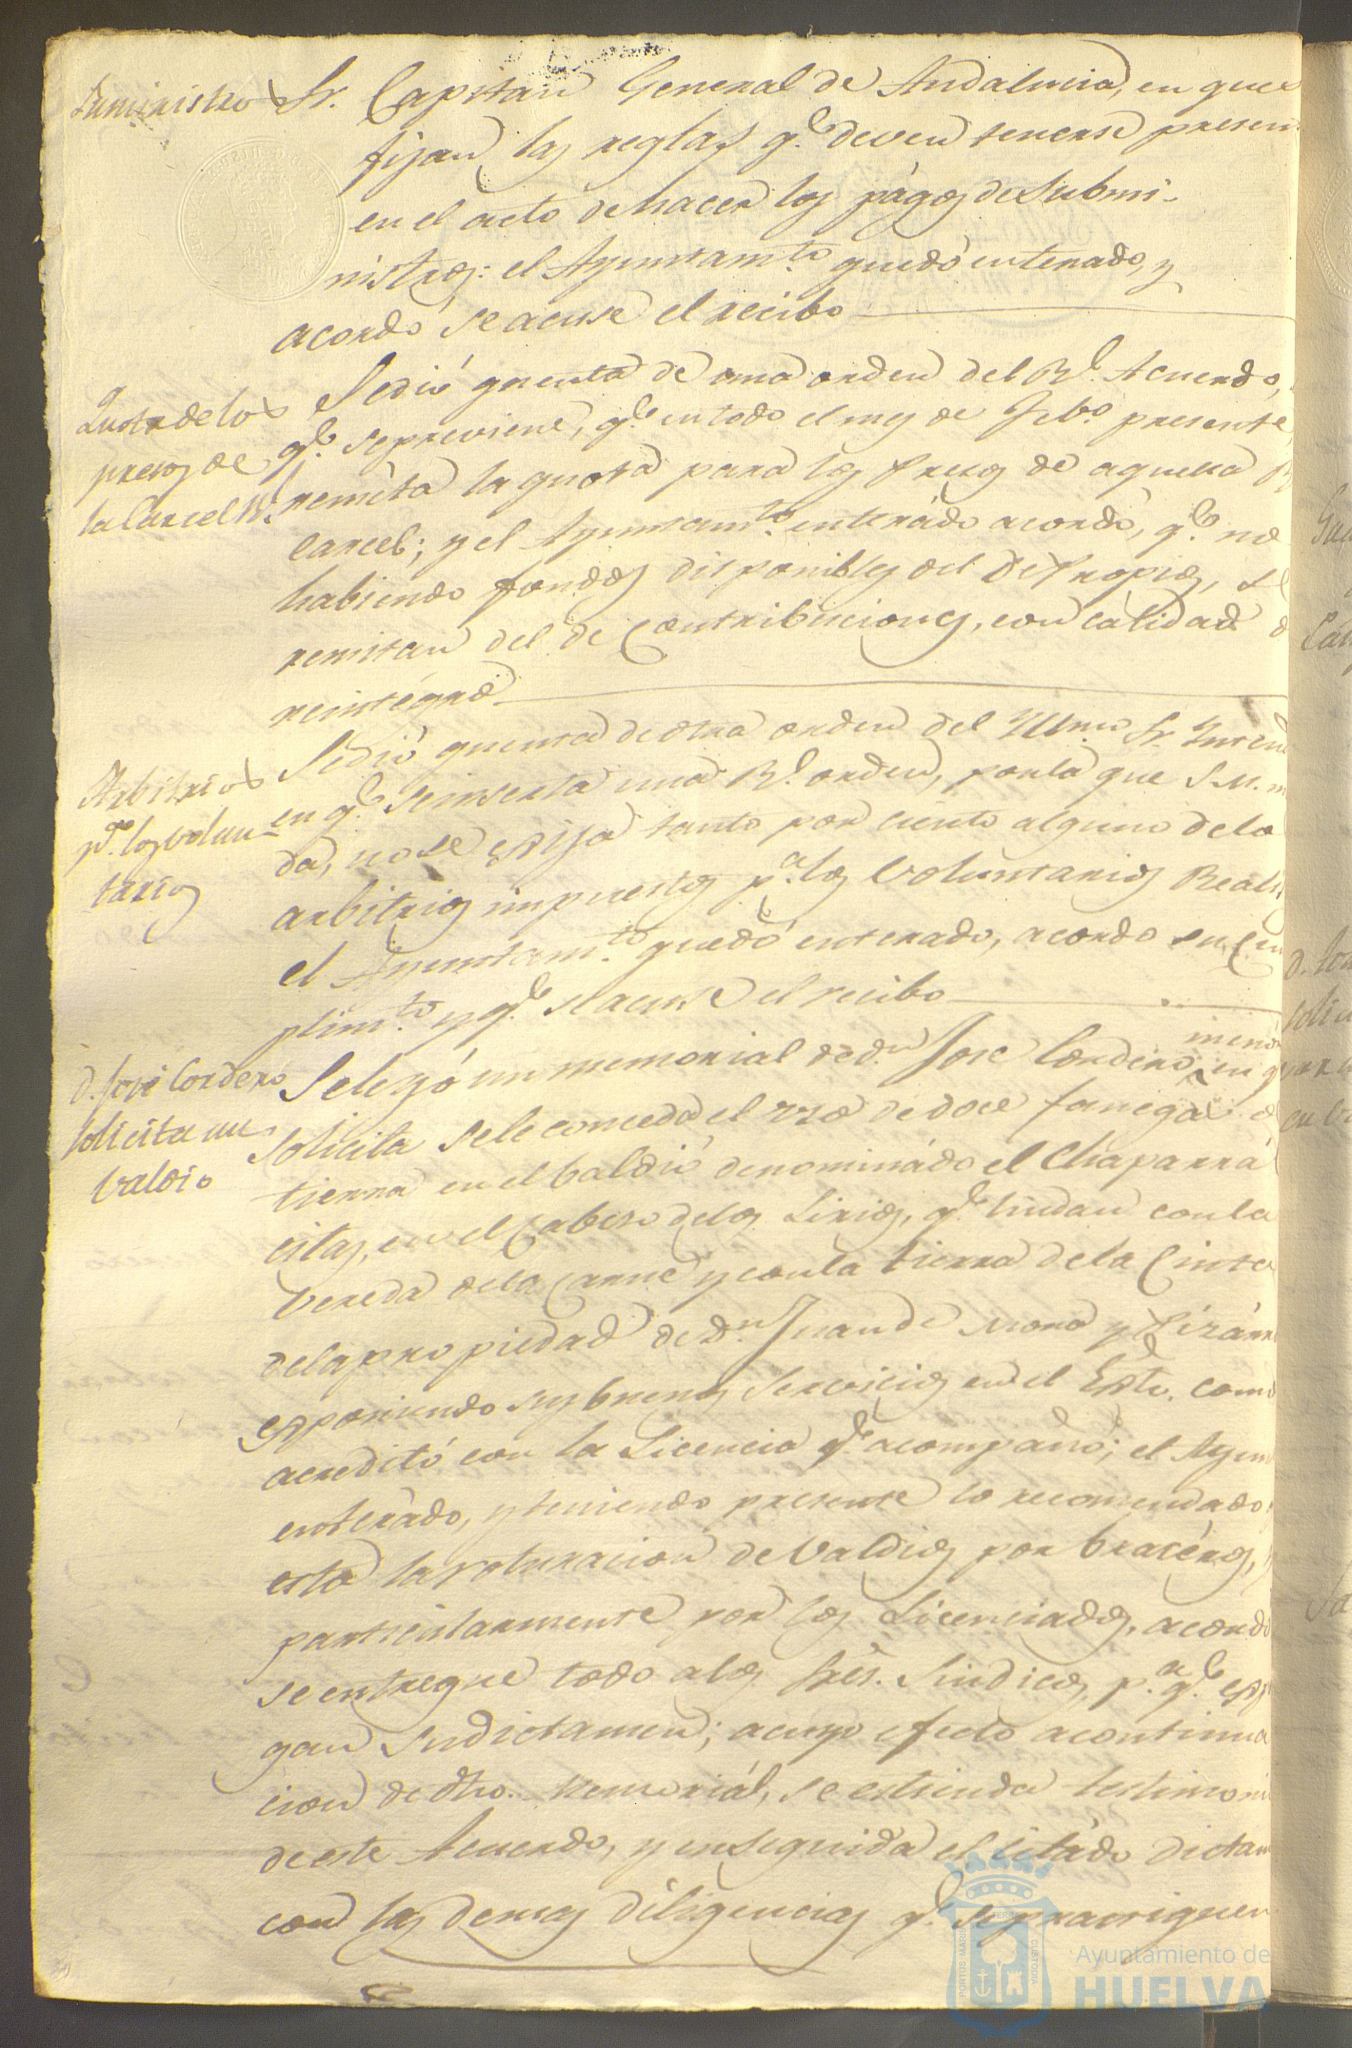 Suministro Sr. Capitan General de Andalucia, en que
fijan las reglas qe. deven tenerse presen
en el acto de hacer los pagos de Submi-
nistros: el Ayuntamto. quedó enterado, y
acordó se acuse el recibo
Quota de los
presos de
la Carcel Rl.
Se dió quenta de una orden del Rl. Acuerdo,
qe. se previene, qe. en todo el mes de Febo. presente,
remita la quota para los Presos de aquella R
Carcel; y el Ayuntamto. enterado acordó, qe. no
habiendo fondos disponibles del de Propios, se
remitan del de Contribuciones, con calidad d
reintegro
Arbitrios
pa. los volun-
tarios
Se dió quenta de otra orden del Yllmo. Sr. Intend
en qe. se inserta una Rl. orden, por la que S.M. m
da, no se exija tanto por ciento alguno de lo
arbitrios impuestos pa. los Voluntarios Reali
el Ayuntamto. quedó enterado, acordó su cum
plimto. y qe. se acuse el recibo
D. José Cordero
solicita un
valdio
Se leyó un memorial de dn. José Cordero menor en q
solicita se le conceda el uso de doce fanegas d
tierra en el baldio denominado el Chaparra
citas, en el Cabezo de los Lirios, qe. lindan con la
vereda de la Carne y con la tierra de la Cinta
de la propiedad de Dn. Juan de Mora y Pizarr
exponiendo sus buenos servicios en el Exto. como
acreditó con la Licencia qe. acompañó; el Ayun
enterado, y teniendo presente lo recomendado
está la roturacion de Valdios por braceros, y
particularmente por los Licenciados, acordó
se entregue todo a los Sres. Sindicos, pa. qe. exp
gan su dictamen; a cuyo efecto a continua
cion de dho. Memorial, se estienda testimoni
de este Acuerdo, y en seguida el citado dictam
con las demas diligencias qe. se practiquen
Ayuntamiento de
HUELVA